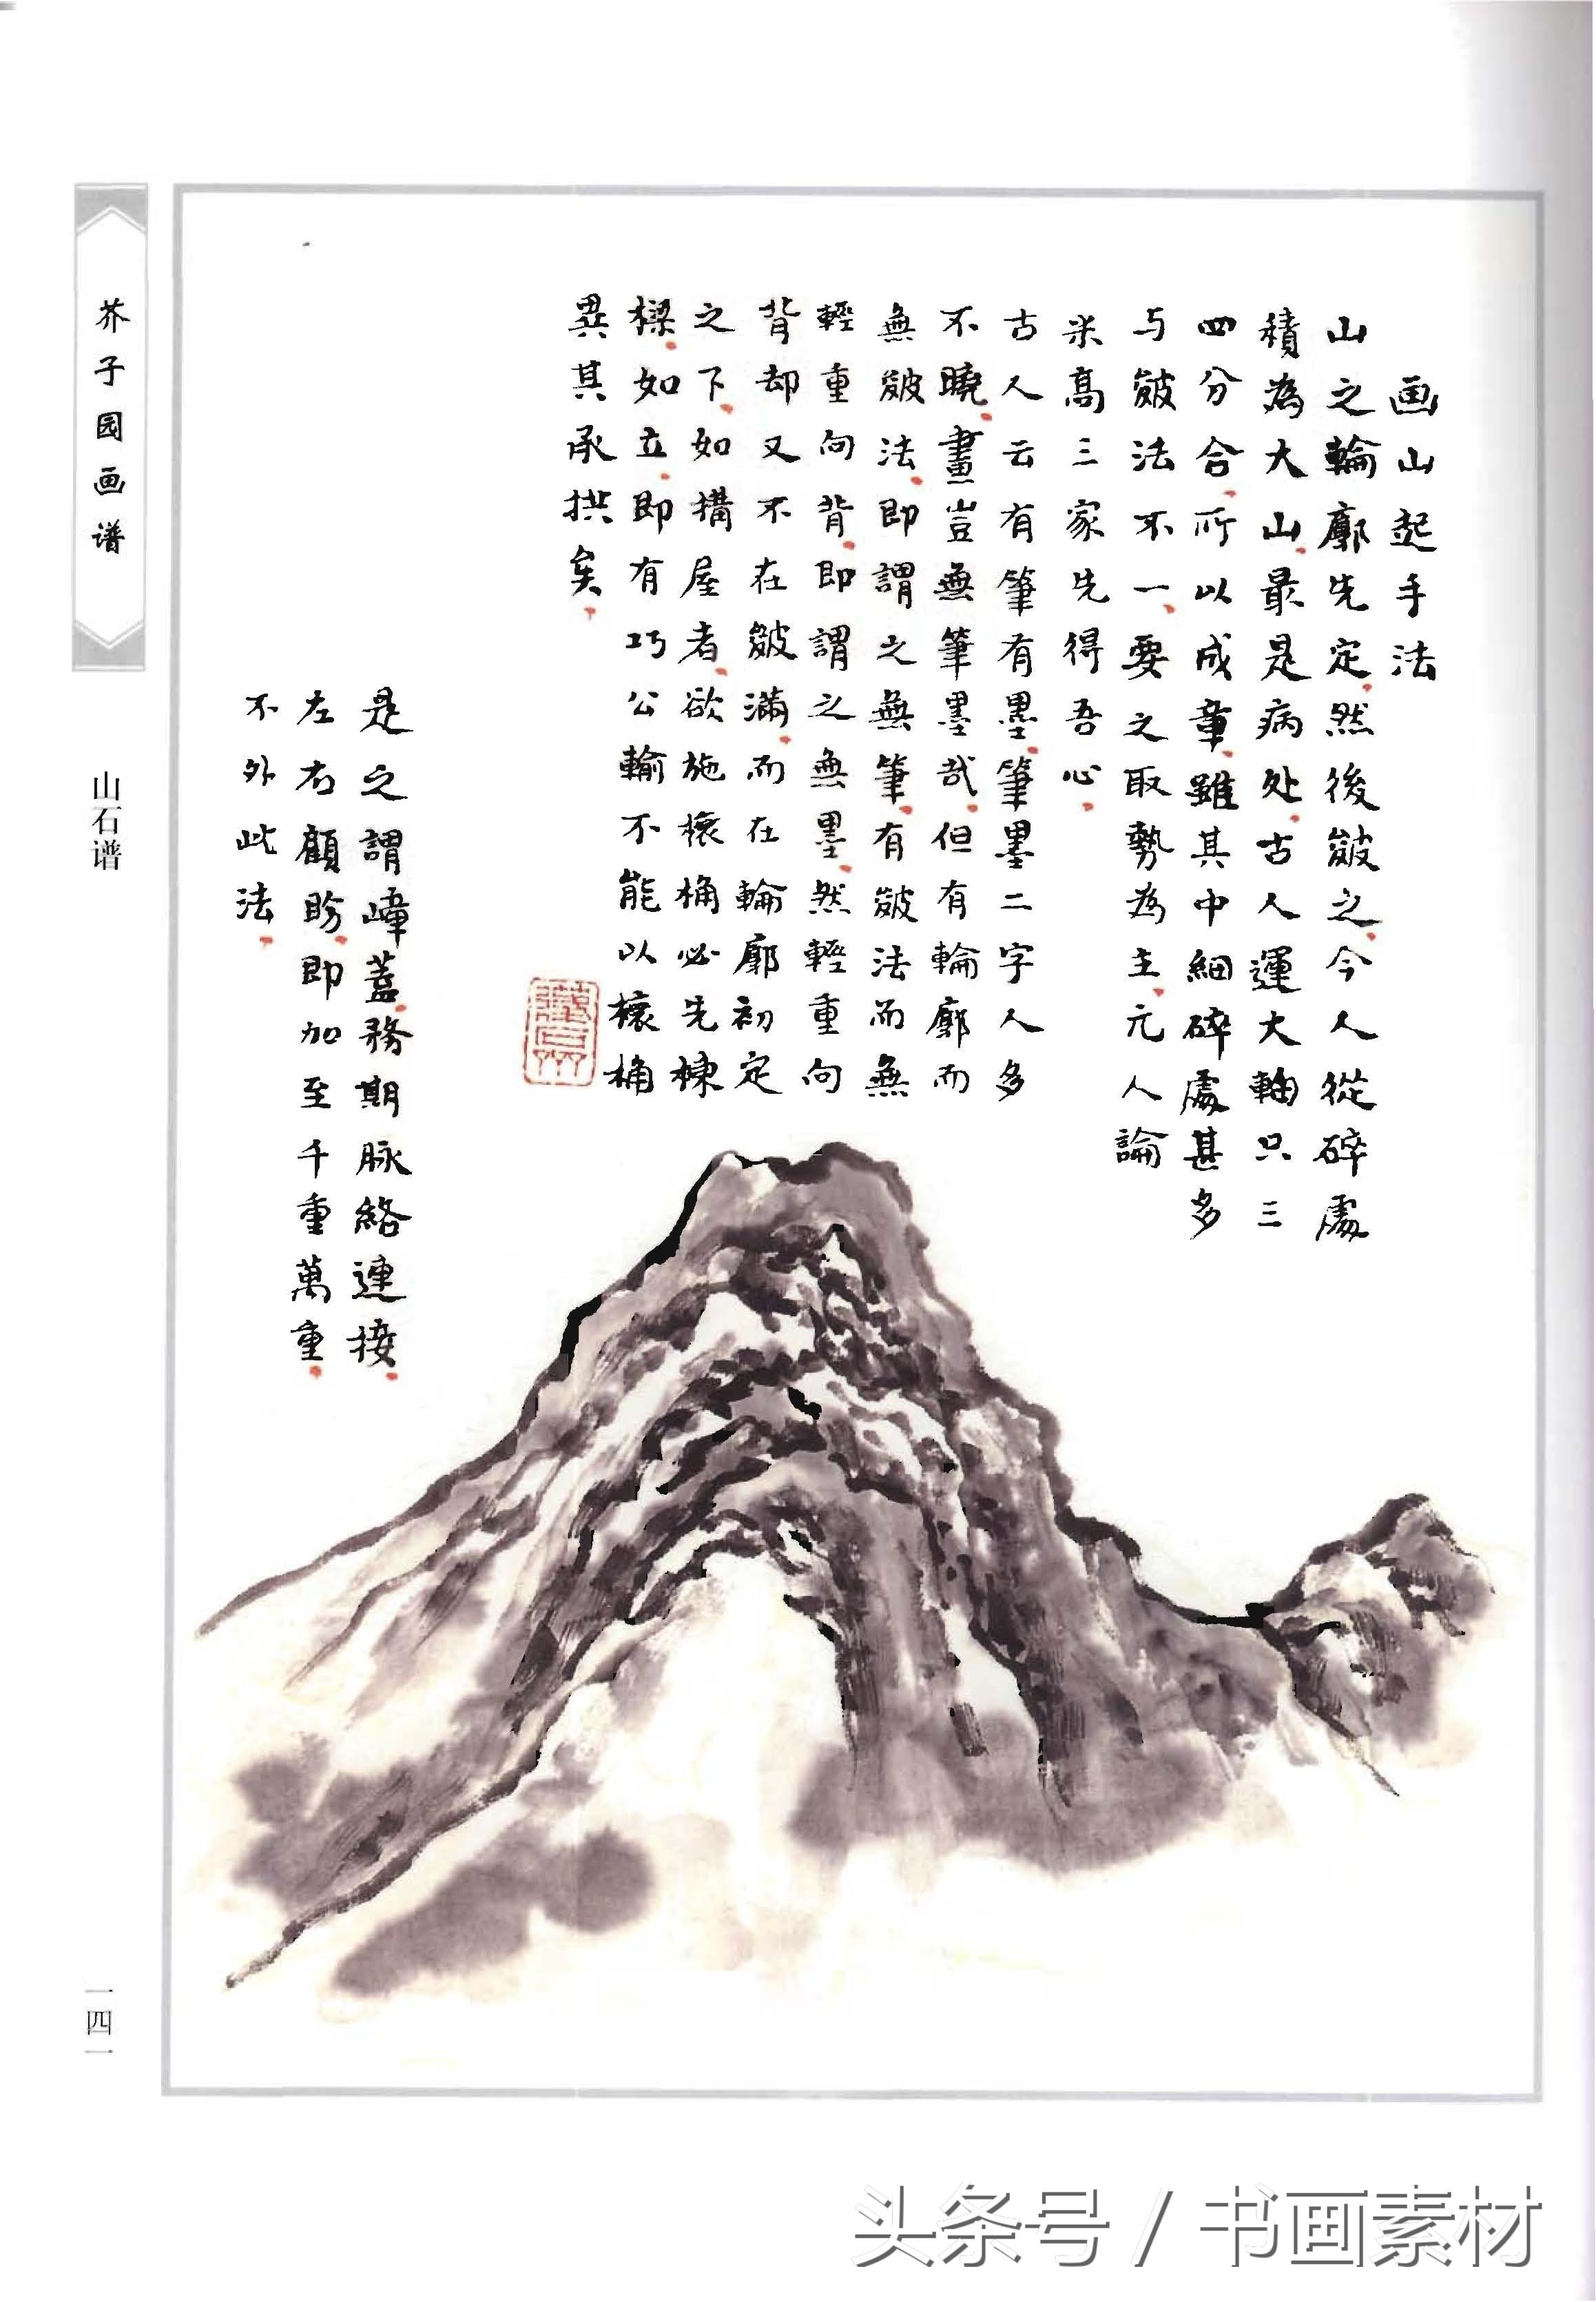 画山起手法
山之輪廓先定然後皴之今人從碎處
積為大山最是病处古人運大軸只三
四分合所以成章雖其中細碎處甚多
与皴法不一要之取勢為主元人論
米高三家先得吾心
古人云有筆有墨筆墨二字人多
不曉畫豈無筆墨哉但有輪廓而
無皴法即謂之無筆有皴法而無
輕重向背即謂之無墨然輕重向
背却又不在皴滿而在輪廓初定
之下如搆屋者欲施榱桷必先棟
樑如立即有巧公輸不能以榱桷
異其承拱矣
是之謂嶂蓋務期脉絡連接
左右顧盼即加至千重萬重
不外此法
芥子园画谱
山石谱
一四一
头条号 / 书画素材